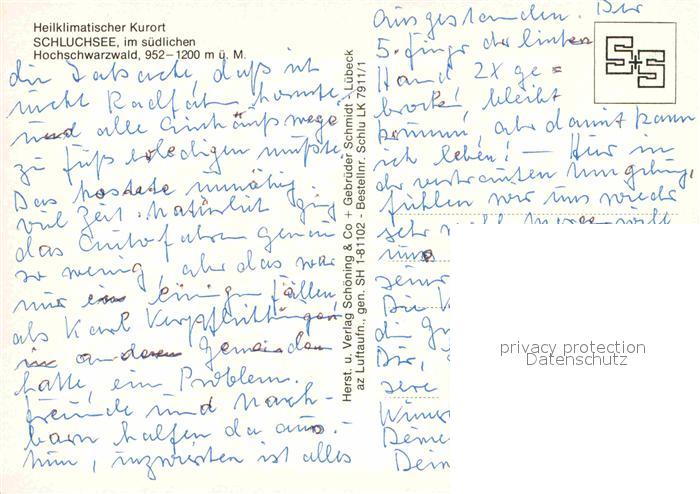 Heilklimatischer Kurort
SCHLUCHSEE, im südlichen
Hochschwarzwald, 952–1200 m ü. M.
die Tatsache, daß ich
nicht Radfahren konnte
und alle Einkaufswege
zu Fuß erledigen mußte.
Das kostete unnötig
viel Zeit. Natürlich ging
das Autofahren genau
so wenig, aber das war
nur in einigen Fällen,
als Karl Verpflichtungen
in anderen Gemeinden
hatte, ein Problem.
Freunde und Nach-
barn halfen da aus.-
Nun, inzwischen ist alles
Herst. u. Verlag Schöning & Co + Gebrüder Schmidt · Lübeck
az Luftaufn., gen. SH 1-81102 - Bestellnr. Schlu LK 7911/1
ausgestanden. Der
5. Finger der linken
Hand 2X ge=
brochen, bleibt
krumm, aber damit kann
ich leben! — Hier in
der vertrauten Umgebung,
fühlen wir uns wieder
sehr wohl. will
uns
seine
Die
die
sere
Deine
Dein
S+S
privacy protection
Datenschutz